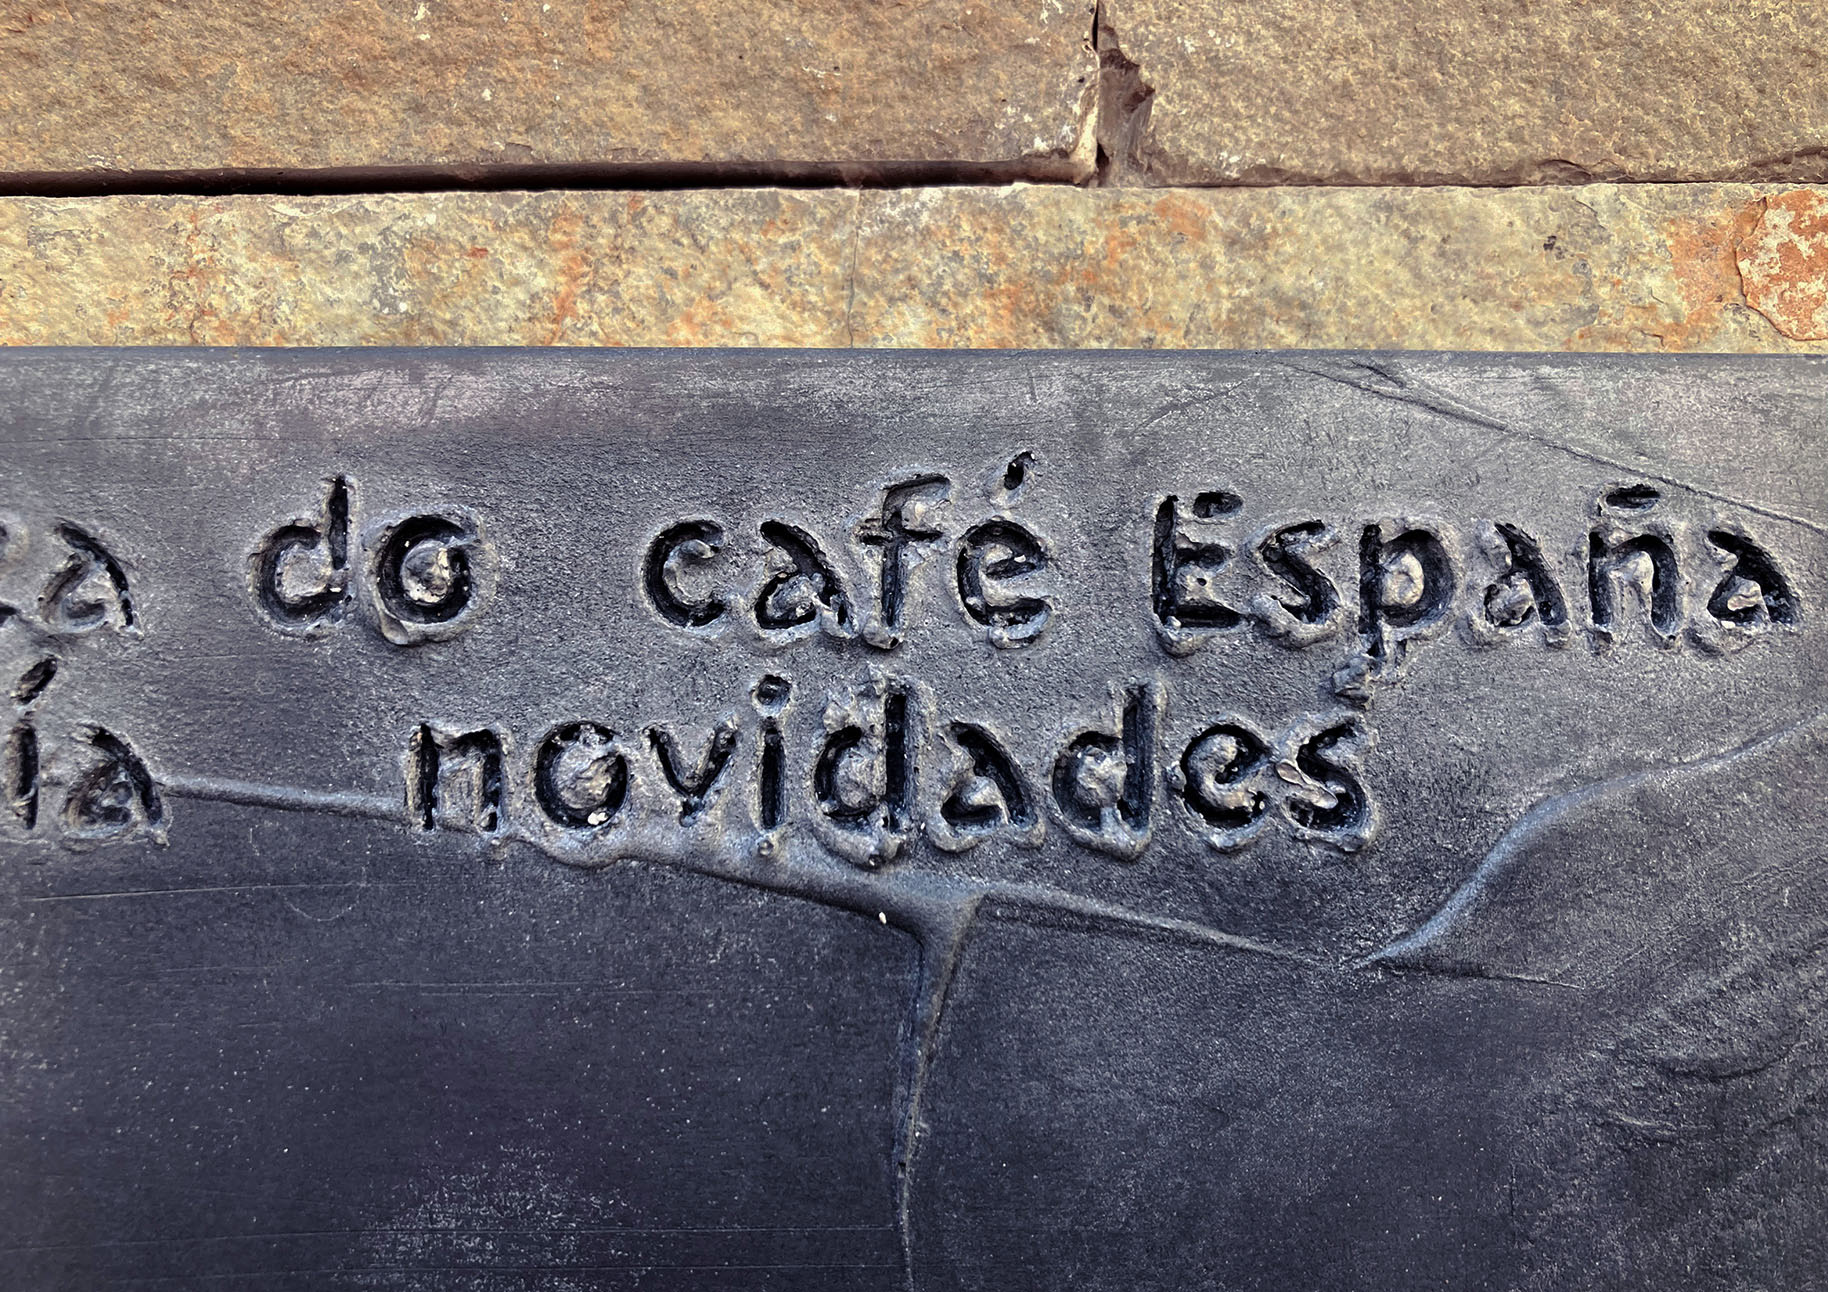 do café España
novidades